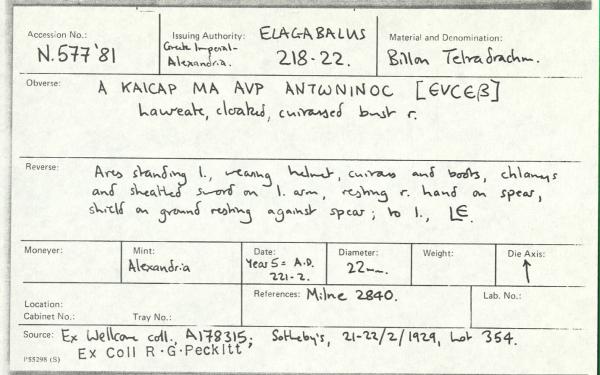 Accession No.:
N.577'81
Issuing Authority: ELAGABALUS
Greek Imperial-
Alexandria. 218-22.
Material and Denomination:
Billon Tetradrachm.
Obverse: A KAICAP MA AVP ANTWNINOC [EVCEB]
Laureate, cloaked, cuirassed bust r.
Reverse: Ares standing l., wearing helmet, cuirass and boots, chlamys
and sheathed sword on l. arm, resting r. hand on spear,
shield on ground resting against spear; to l., LE.
Moneyer:
Mint:
Alexandria
Date:
Year 5 = A.D.
221-2.
Diameter:
22mm.
Weight:
Die Axis:
↑
Location:
Cabinet No.: Tray No.:
References: Milne 2840.
Lab. No.:
Source: Ex Wellcome coll., A178315; Sotheby's, 21-22/2/1929, Lot 354.
Ex Coll R.G.Peckitt
P55298 (S)